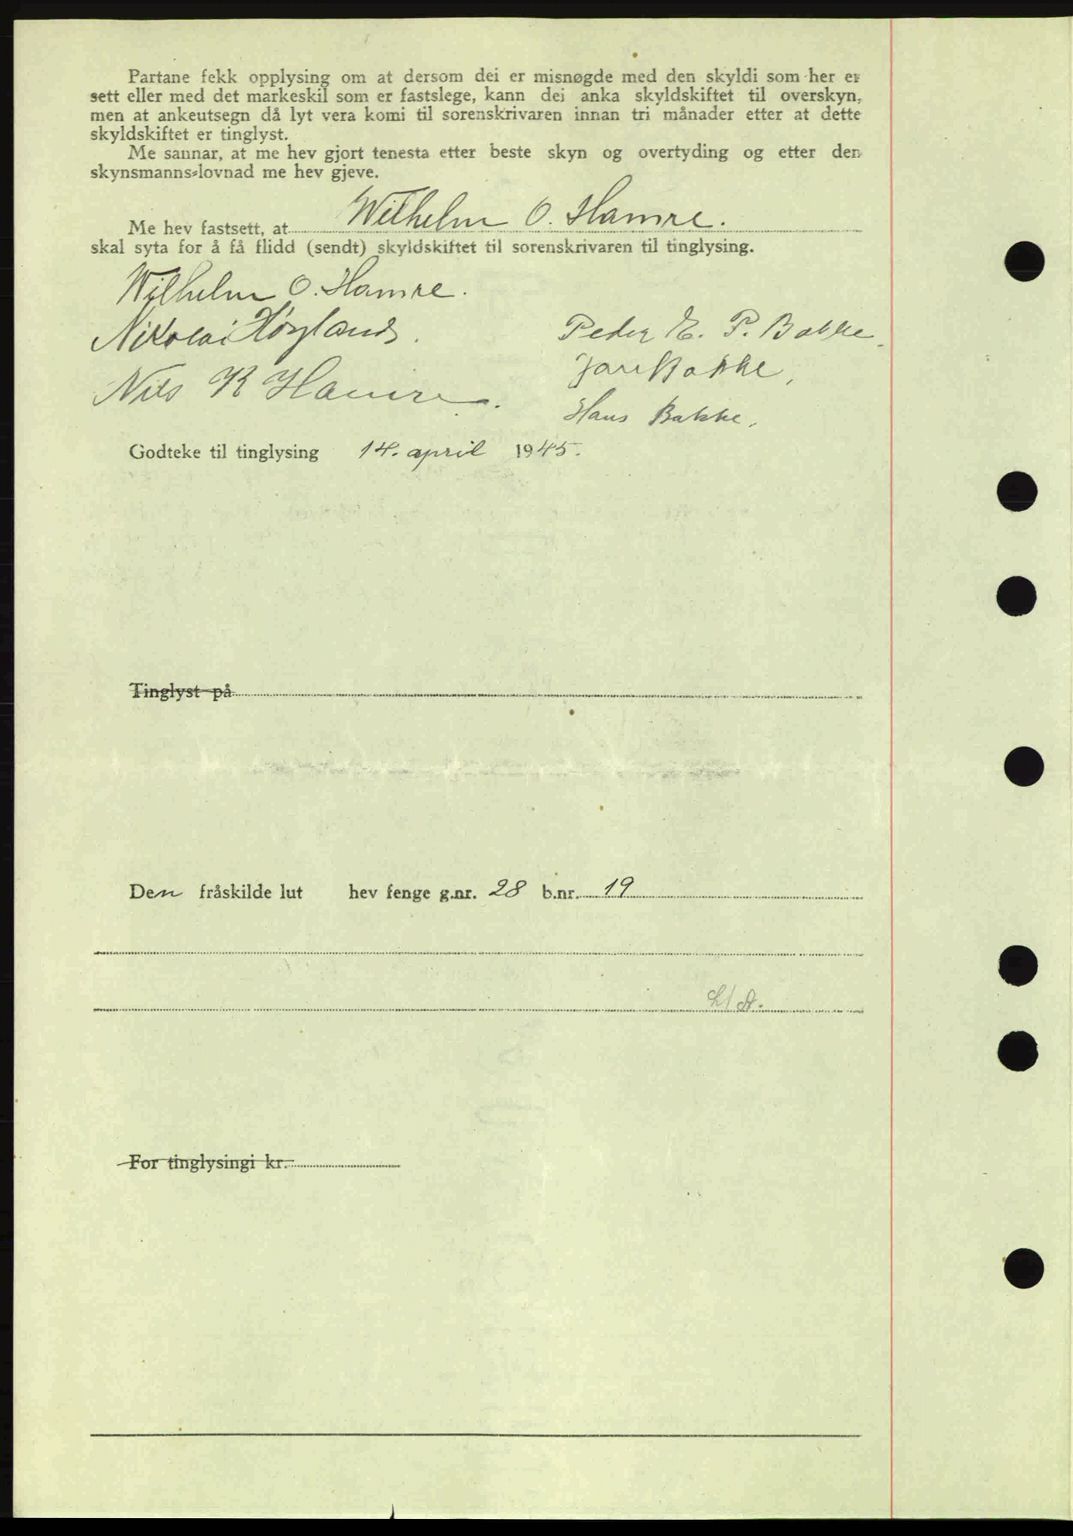 Partane fekk opplysing om at dersom dei er misnøgde med den skyldi som her er
sett eller med det markeskil som er fastslege, kann dei anka skyldskiftet til overskyn,
men at ankeutsegn då lyt vera komi til sorenskrivaren innan tri månader etter at dette
skyldskiftet er tinglyst.
Me sannar, at me hev gjort tenesta etter beste skyn og overtyding og etter den
skynsmanns-lovnad me hev gjeve.
Me hev fastsett, at Wilhelm O. Hamre.
skal syta for å få flidd (sendt) skyldskiftet til sorenskrivaren til tinglysing.
Wilhelm O. Hamre.
Nikolai Høyland. Peder E. P. Bakke.
Nils K Hamre. Bakke,
Hans Bakke,
Godteke til tinglysing 14. april 1945.
Tinglyst på
Den fråskilde lut hev fenge g.nr. 28 b.nr. 19
For tinglysingi kr.